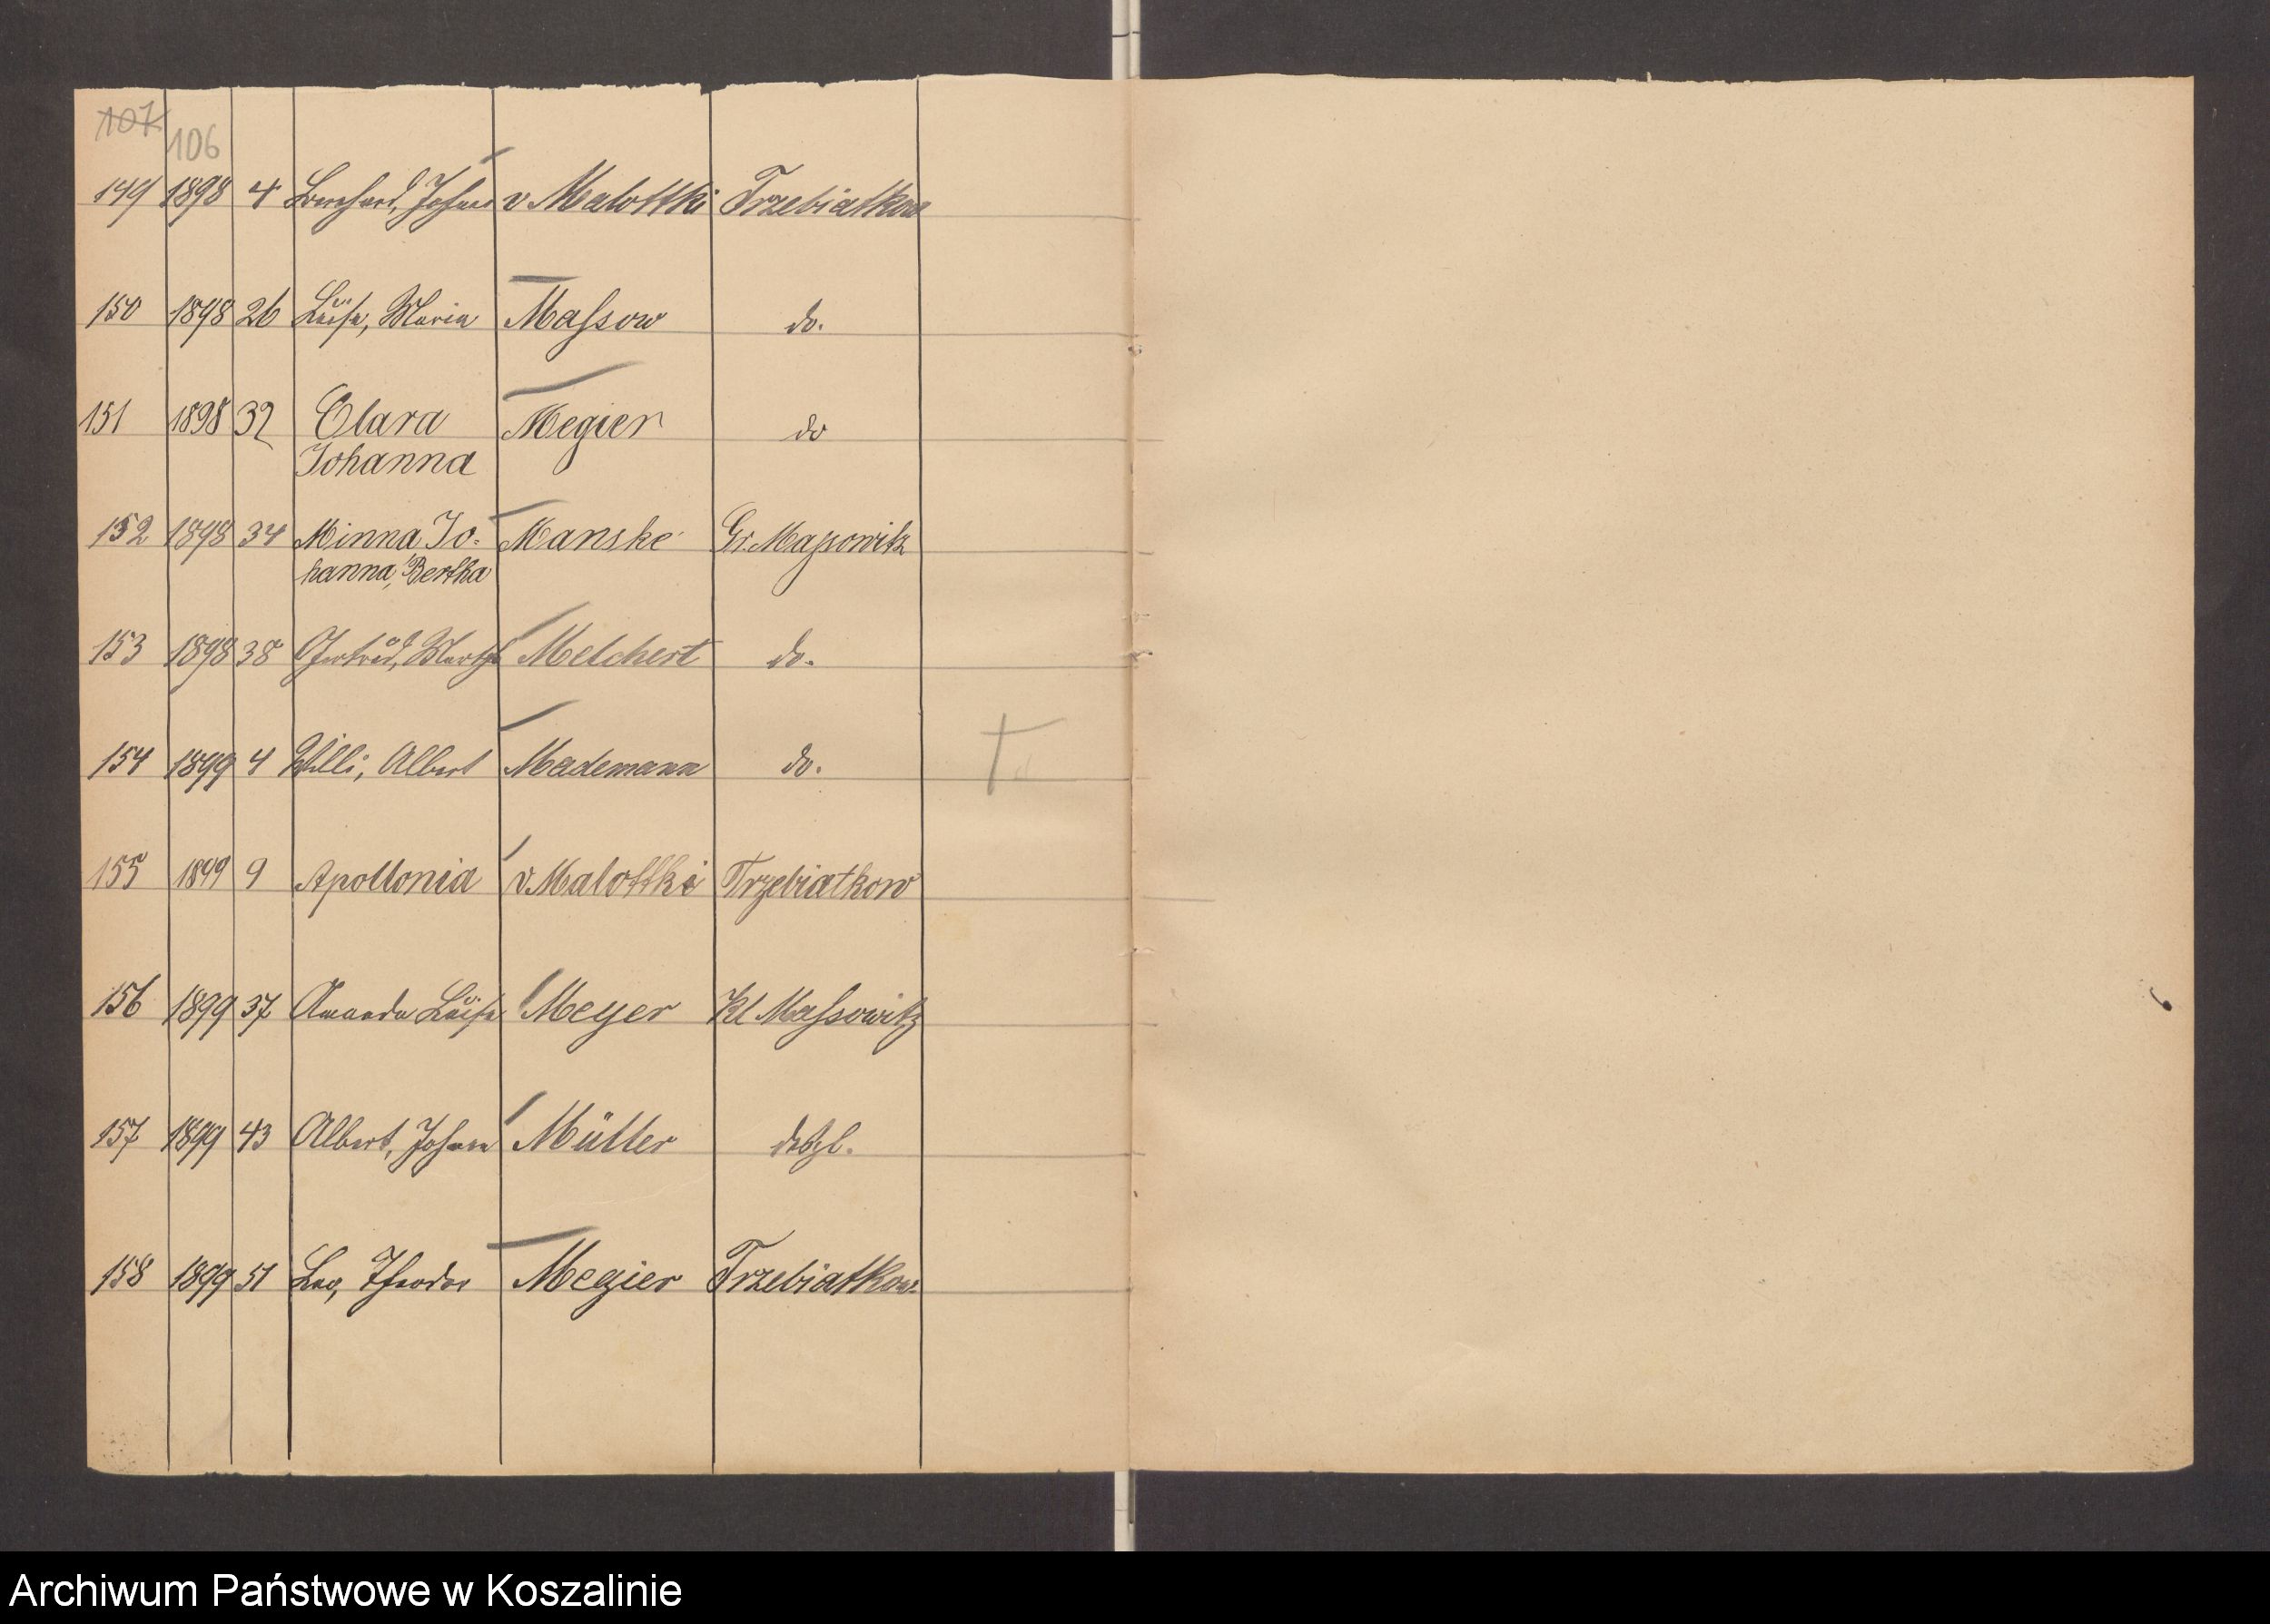 107
106
149 1898 4 Bernhard, Johann v Malottki Trzebiatkow
150 1898 26 Luise, Maria Massow do.
151 1898 32 Clara Megier do
Johanna
152 1898 34 Minna, Jo- Manske Gr. Massowitz
hanna, Bertha
153 1898 38 Gertrud, Martha Melchert do.
154 1899 4 Willi, Albert Mademann do.
155 1899 9 Apollonia v Malottki Trzebiatkow
156 1899 37 Amanda Luise Meyer Kl Massowitz
157 1899 43 Albert, Johann Müller desgl.
158 1899 51 Leo, Theodor Megier Trzebiatkow
Archiwum Państwowe w Koszalinie